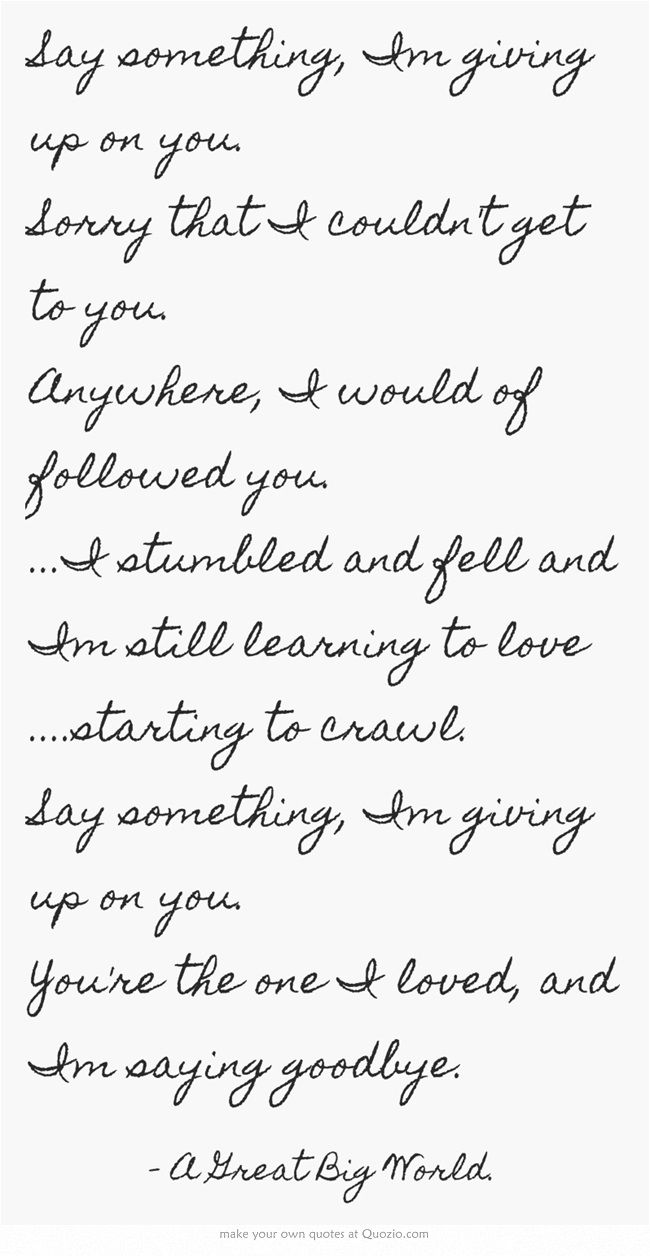 Say something, Im giving
up on you.
Sorry that I couldn't get
to you.
Anywhere, I would of
followed you.
...I stumbled and fell and
Im still learning to love
....starting to crawl.
Say something, Im giving
up on you.
You're the one I loved, and
Im saying goodbye.
- A Great Big World.
make your own quotes at Quozio.com